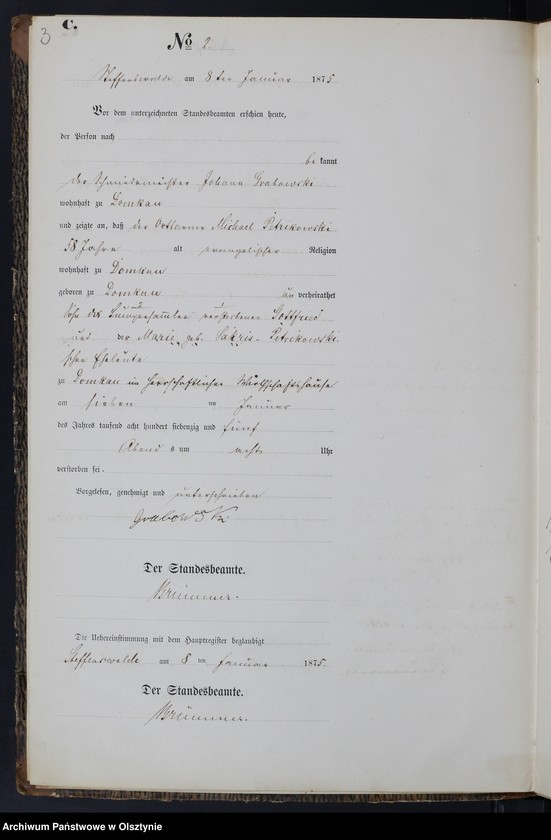 3
C.
No 2.
Steffenswalde am 8ten Januar 1875
Vor dem unterzeichneten Standesbeamten erschien heute,
der Person nach
be kannt
der Schmiedemeister Johann Grabowski
wohnhaft zu Domkau
und zeigte an, daß der Ortsarme Michael Petrikowski
58 Jahre alt evangelischer Religion
wohnhaft zu Domkau
geboren zu Domkau un verheirathet
Sohn des verstorbenen Gottfried
und der Marie geb. Petrikowski
schen Eheleute
zu Domkau im herrschaftlichen Wirthschaftshause
am sieben ten Januar
des Jahres tausend acht hundert siebenzig und fünf
Abend s um acht Uhr
verstorben sei.
Vorgelesen, genehmigt und unterschrieben
Grabowski
Der Standesbeamte.
Brümmer.
Die Uebereinstimmung mit dem Hauptregister beglaubigt
Steffenswalde am 8 ten Januar 1875.
Der Standesbeamte.
Brümmer.
Archiwum Państwowe w Olsztynie